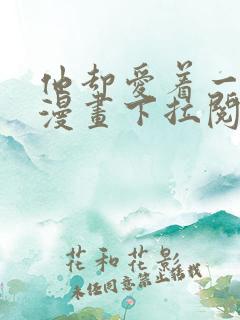 他却爱着一
漫畫下拉閱
花和花影
未经同意禁止转载